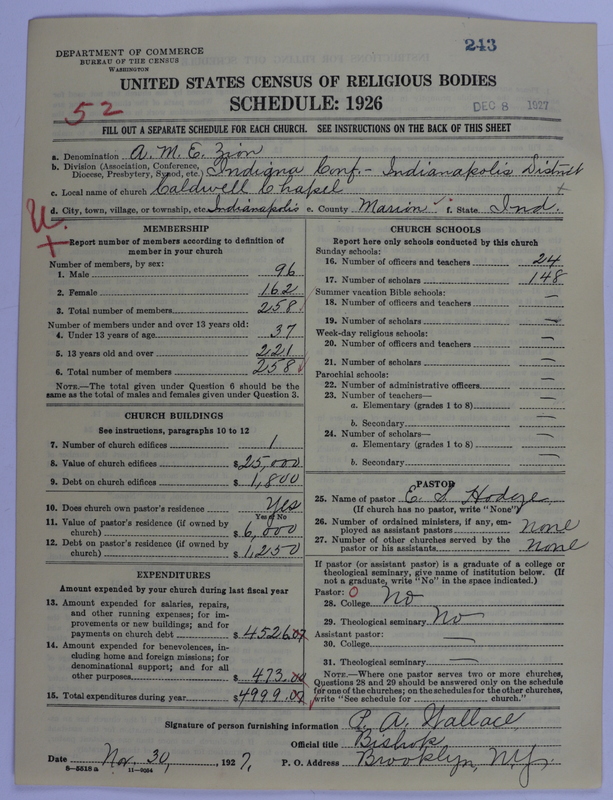 243
DEPARTMENT OF COMMERCE
BUREAU OF THE CENSUS
WASHINGTON
UNITED STATES CENSUS OF RELIGIOUS BODIES
SCHEDULE: 1926
52
DEC 8 1927
FILL OUT A SEPARATE SCHEDULE FOR EACH CHURCH. SEE INSTRUCTIONS ON THE BACK OF THIS SHEET
a. Denomination A. M. E. Zion
b. Division (Association, Conference, Diocese, Presbytery, Synod, etc.) Indiana Conf - Indianapolis District
c. Local name of church Caldwell Chapel
d. City, town, village, or township, etc. Indianapolis e. County Marion f. State Ind.
MEMBERSHIP
Report number of members according to definition of
member in your church
Number of members, by sex:
1. Male 96
2. Female 162
3. Total number of members 258
Number of members under and over 13 years old:
4. Under 13 years of age 37
5. 13 years old and over 221
6. Total number of members 258
NOTE.—The total given under Question 6 should be the
same as the total of males and females given under Question 3.
CHURCH BUILDINGS
See instructions, paragraphs 10 to 12
7. Number of church edifices 1
8. Value of church edifices $25,000
9. Debt on church edifices $1,800
10. Does church own pastor's residence Yes
Yes or No
11. Value of pastor's residence (if owned by
church) $6,000
12. Debt on pastor's residence (if owned by
church) $1,250
EXPENDITURES
Amount expended by your church during last fiscal year
13. Amount expended for salaries, repairs,
and other running expenses; for im-
provements or new buildings; and for
payments on church debt $4526.07
14. Amount expended for benevolences, in-
cluding home and foreign missions; for
denominational support; and for all
other purposes $473.00
15. Total expenditures during year $4999.07
CHURCH SCHOOLS
Report here only schools conducted by this church
Sunday schools:
16. Number of officers and teachers 24
17. Number of scholars 148
Summer vacation Bible schools:
18. Number of officers and teachers —
19. Number of scholars —
Week-day religious schools:
20. Number of officers and teachers —
21. Number of scholars —
Parochial schools:
22. Number of administrative officers —
23. Number of teachers—
a. Elementary (grades 1 to 8) —
b. Secondary —
24. Number of scholars—
a. Elementary (grades 1 to 8) —
b. Secondary —
PASTOR
25. Name of pastor E. S. Hodge
(If church has no pastor, write "None")
26. Number of ordained ministers, if any, em-
ployed as assistant pastors none
27. Number of other churches served by the
pastor or his assistants none
If pastor (or assistant pastor) is a graduate of a college or
theological seminary, give name of institution below. (If
not a graduate, write "No" in the space indicated.)
Pastor: O
28. College No
29. Theological seminary No
Assistant pastor:
30. College —
31. Theological seminary —
NOTE.—Where one pastor serves two or more churches,
Questions 28 and 29 should be answered only on the schedule
for one of the churches; on the schedules for the other churches,
write "See schedule for church."
Signature of person furnishing information P. A. Wallace
Official title Bishop
Date Nov. 30, 1927, P. O. Address Brooklyn, N.Y.
8—5518 a 11—9094